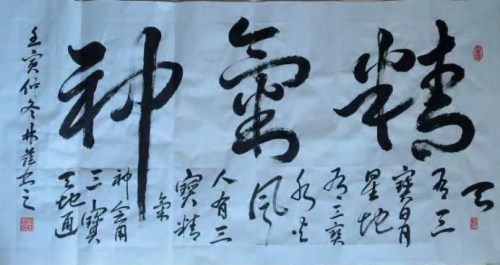 精氣神
天
有三
寶日月
星地
有三寶
水火
風
人有三
寶精
氣
神會用
三寶
天地通
壬寅仲冬林